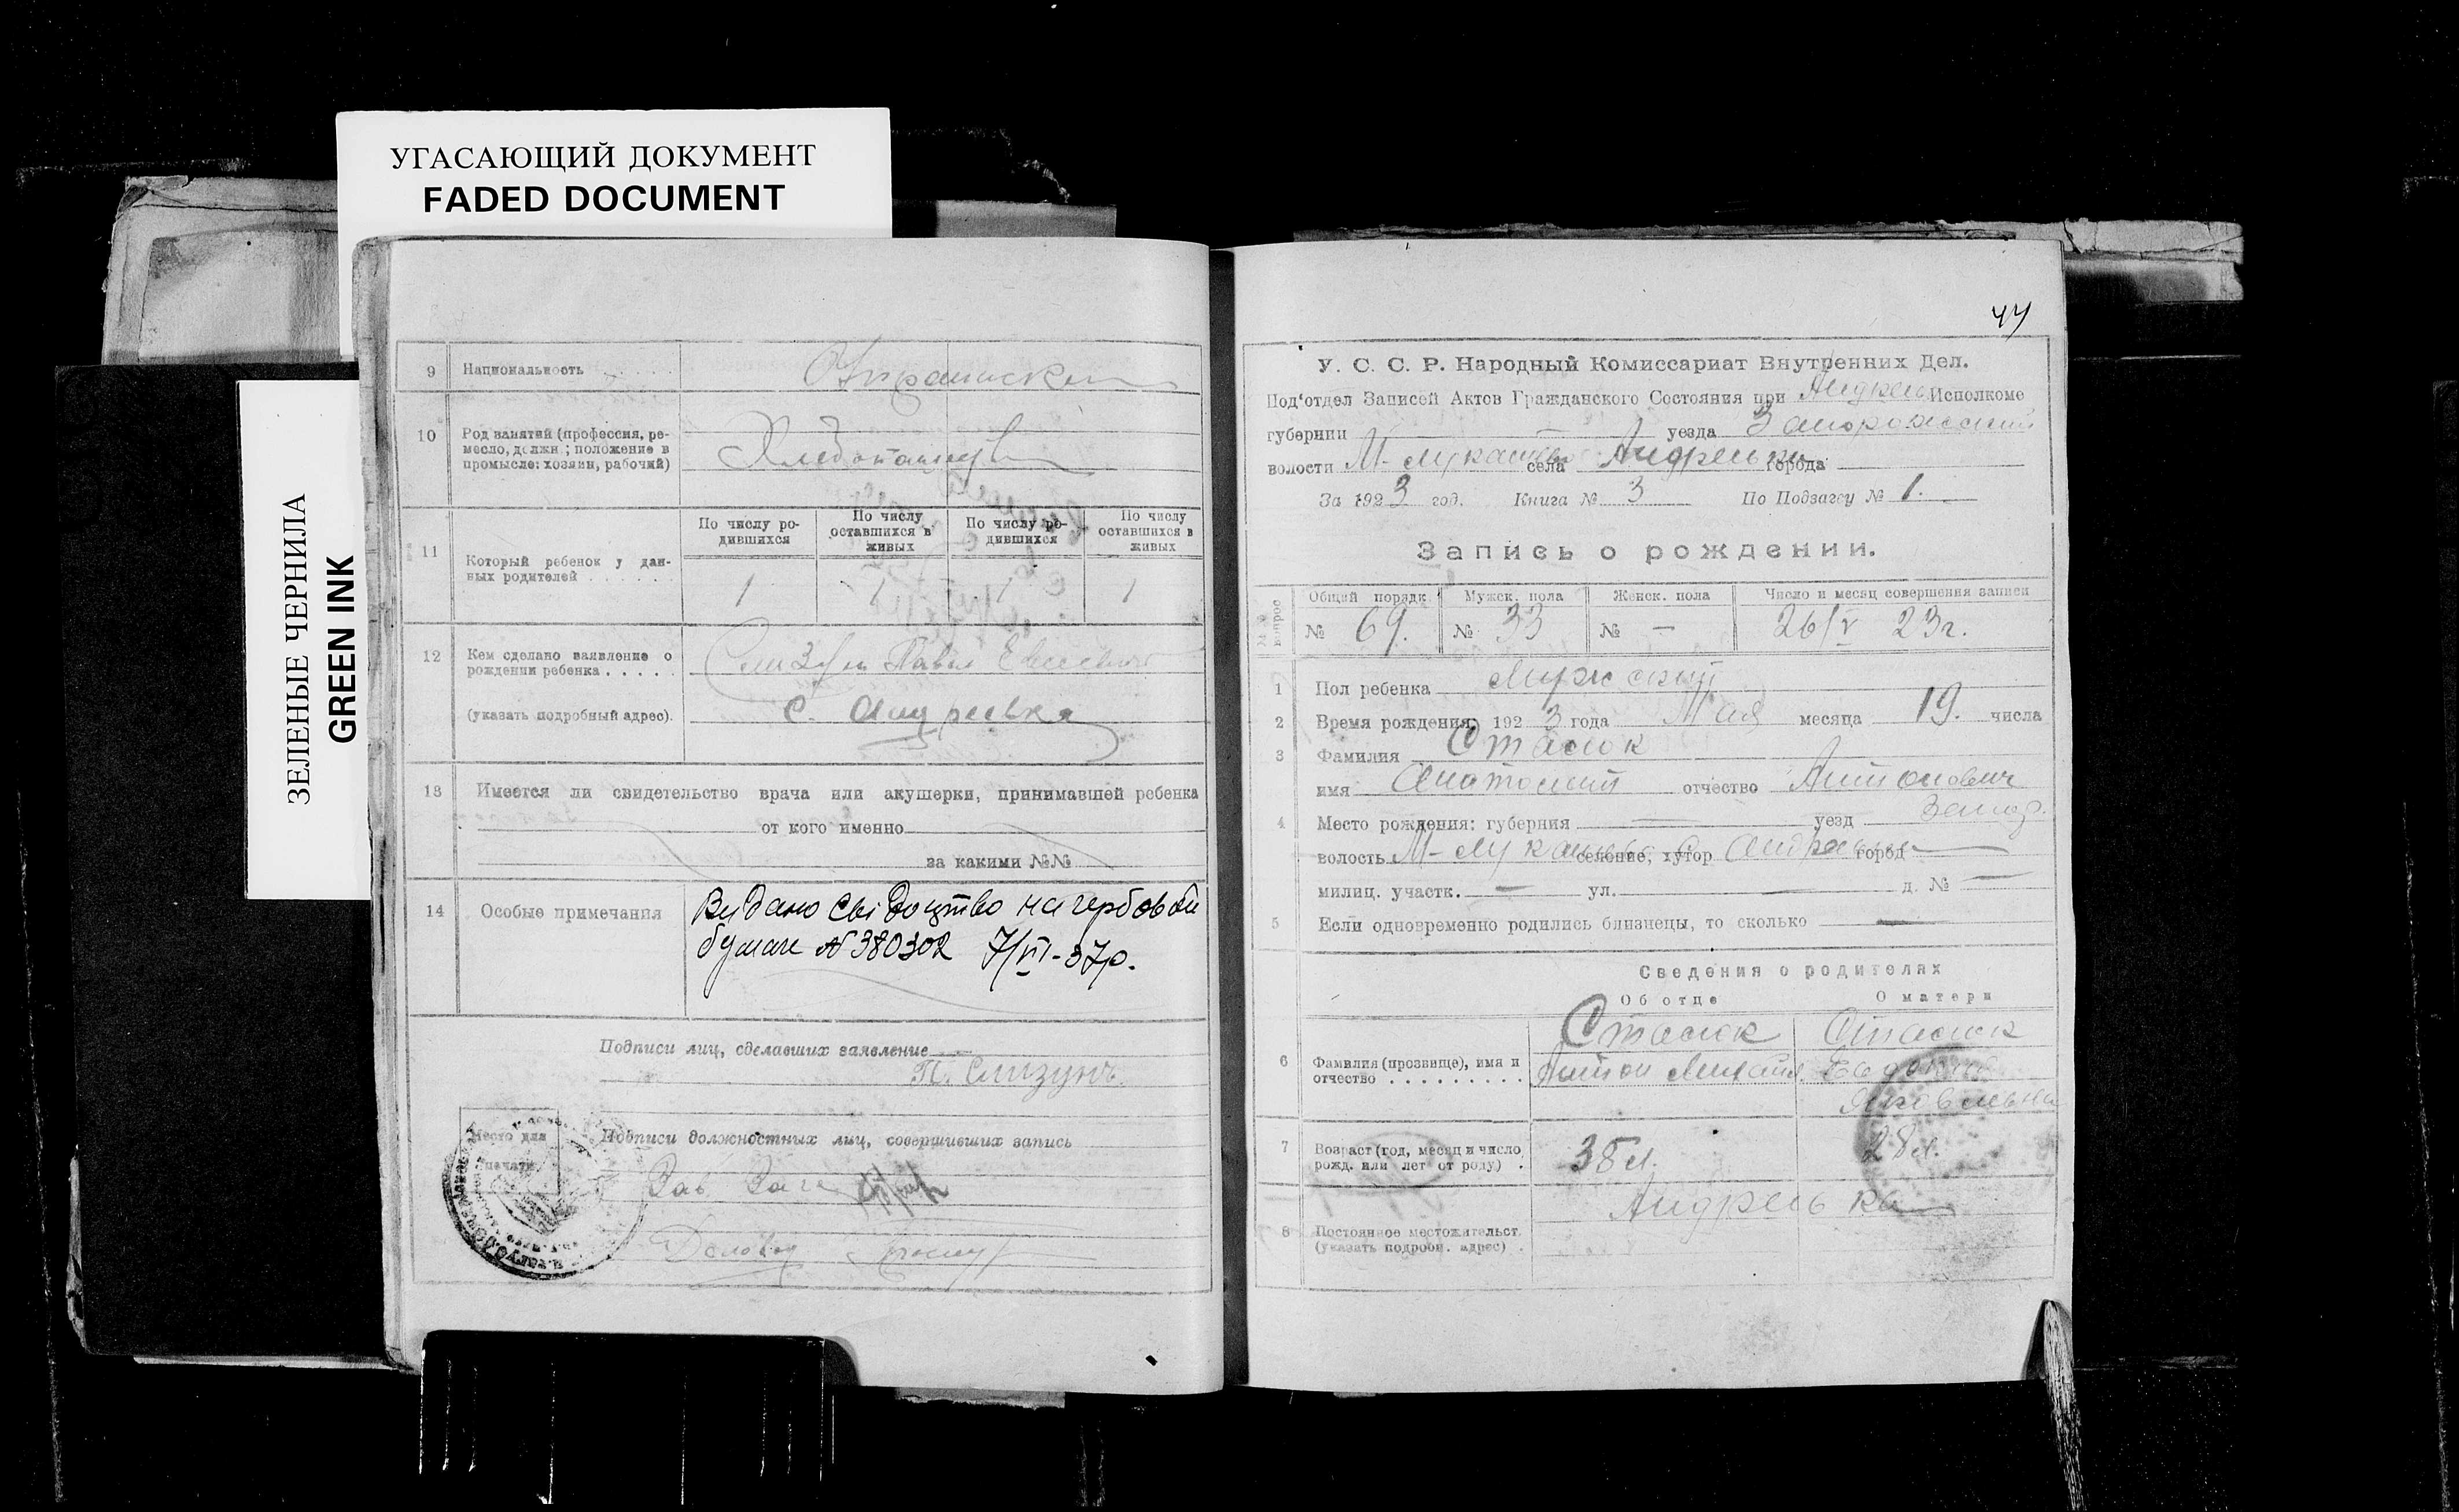 УГАСАЮЩИЙ ДОКУМЕНТ
FADED DOCUMENT
ЗЕЛЕНЫЕ ЧЕРНИЛА
GREEN INK
9 Национальность
10 Род занятий (профессия, ре-
месло, должн.; положение в
промысле: хозяин, рабочий)
11 Который ребенок у дан-
ных родителей
По числу ро-
дившихся
По числу
оставшихся в
живых
По числу ро-
дившихся
По числу
оставшихся в
живых
1 1 1 1
12 Кем сделано заявление о
рождении ребенка
Слизун Павел Евсеевич
(указать подробный адрес).
с. Андреевка
13 Имеется ли свидетельство врача или акушерки, принимавшей ребенка
от кого именно
за какими №№
14 Особые примечания
Видано свідоцтво на гербовой
бумаге № 380302 7/VI-37р.
Подписи лиц, сделавших заявление
П. Слизунъ.
Место для
печати
Подписи должностных лиц, совершивших запись
Зав Загс
Деловод
44
У. С. С. Р. Народный Комиссариат Внутренних Дел.
Под'отдел Записей Актов Гражданского Состояния при Андреев Исполкоме
губернии — уезда Запорожский
волости села города
За 1923 год. Книга № 3 По Подзагсу № 1.
Запись о рождении.
№№ вопрос
Общий порядк. Мужск. пола Женск. пола Число и месяц совершения записи
№ 69. № 33 № — 26/V 23г.
1 Пол ребенка Мужский
2 Время рождения, 1923 года Мая месяца 19. числа
3 Фамилия Стасюк
имя Анатолий отчество Антонович
4 Место рождения: губерния — уезд Запор.
волость селение, хутор город —
милиц. участк. — ул. — д. № —
5 Если одновременно родились близнецы, то сколько —
Сведения о родителях
Об отце О матери
6 Фамилия (прозвище), имя и
отчество
Стасюк Стасюк
Антон Михайл. Евдокия
Яковлевна
7 Возраст (год, месяц и число
рожд. или лет от роду) .
38 л. 28 л.
8 Постоянное местожительст.
(указать подробн. адрес) .
Андреевка